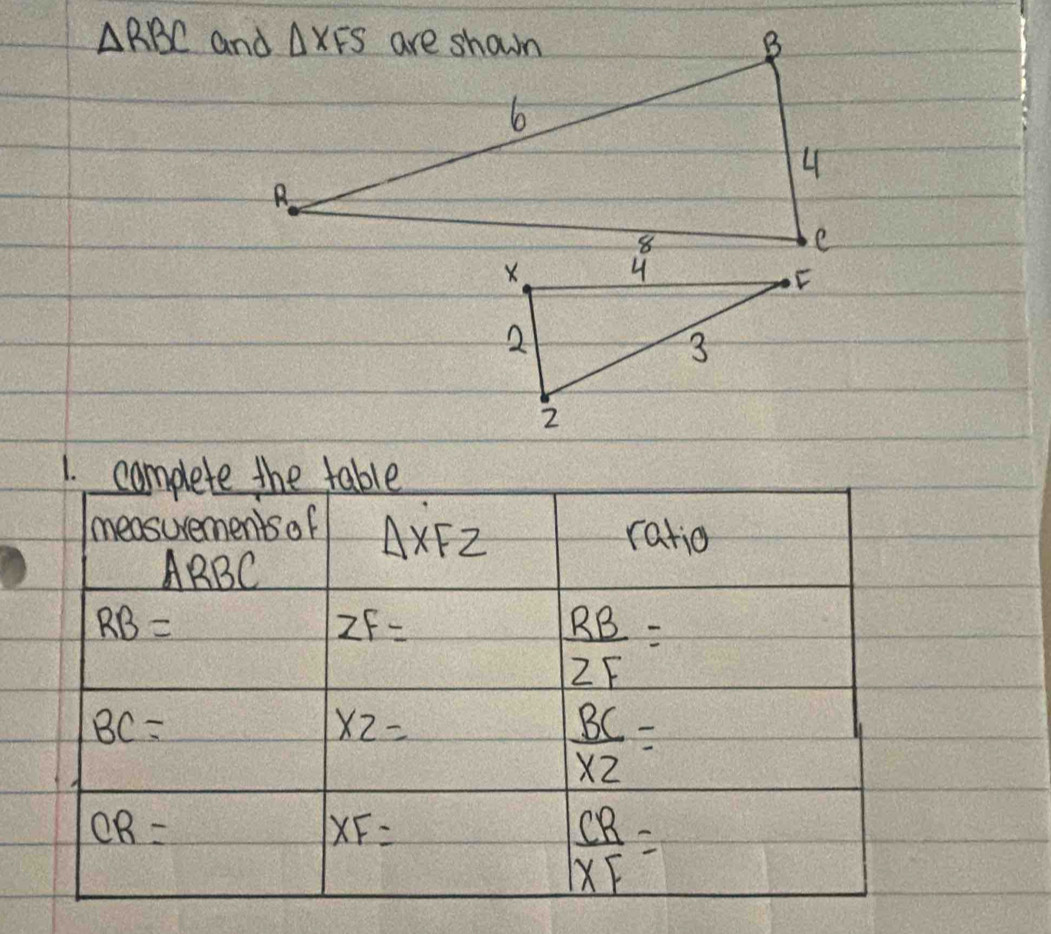 ΔRBC and ΔXFS are shown
B
6
4
R
8
C
X
4
F
2
3
Z
1. complete the table
measurements of ΔRBC | ΔXFZ | ratio
RB = | ZF = | RB/ZF =
BC = | XZ = | BC/XZ =
CR = | XF = | CR/XF =